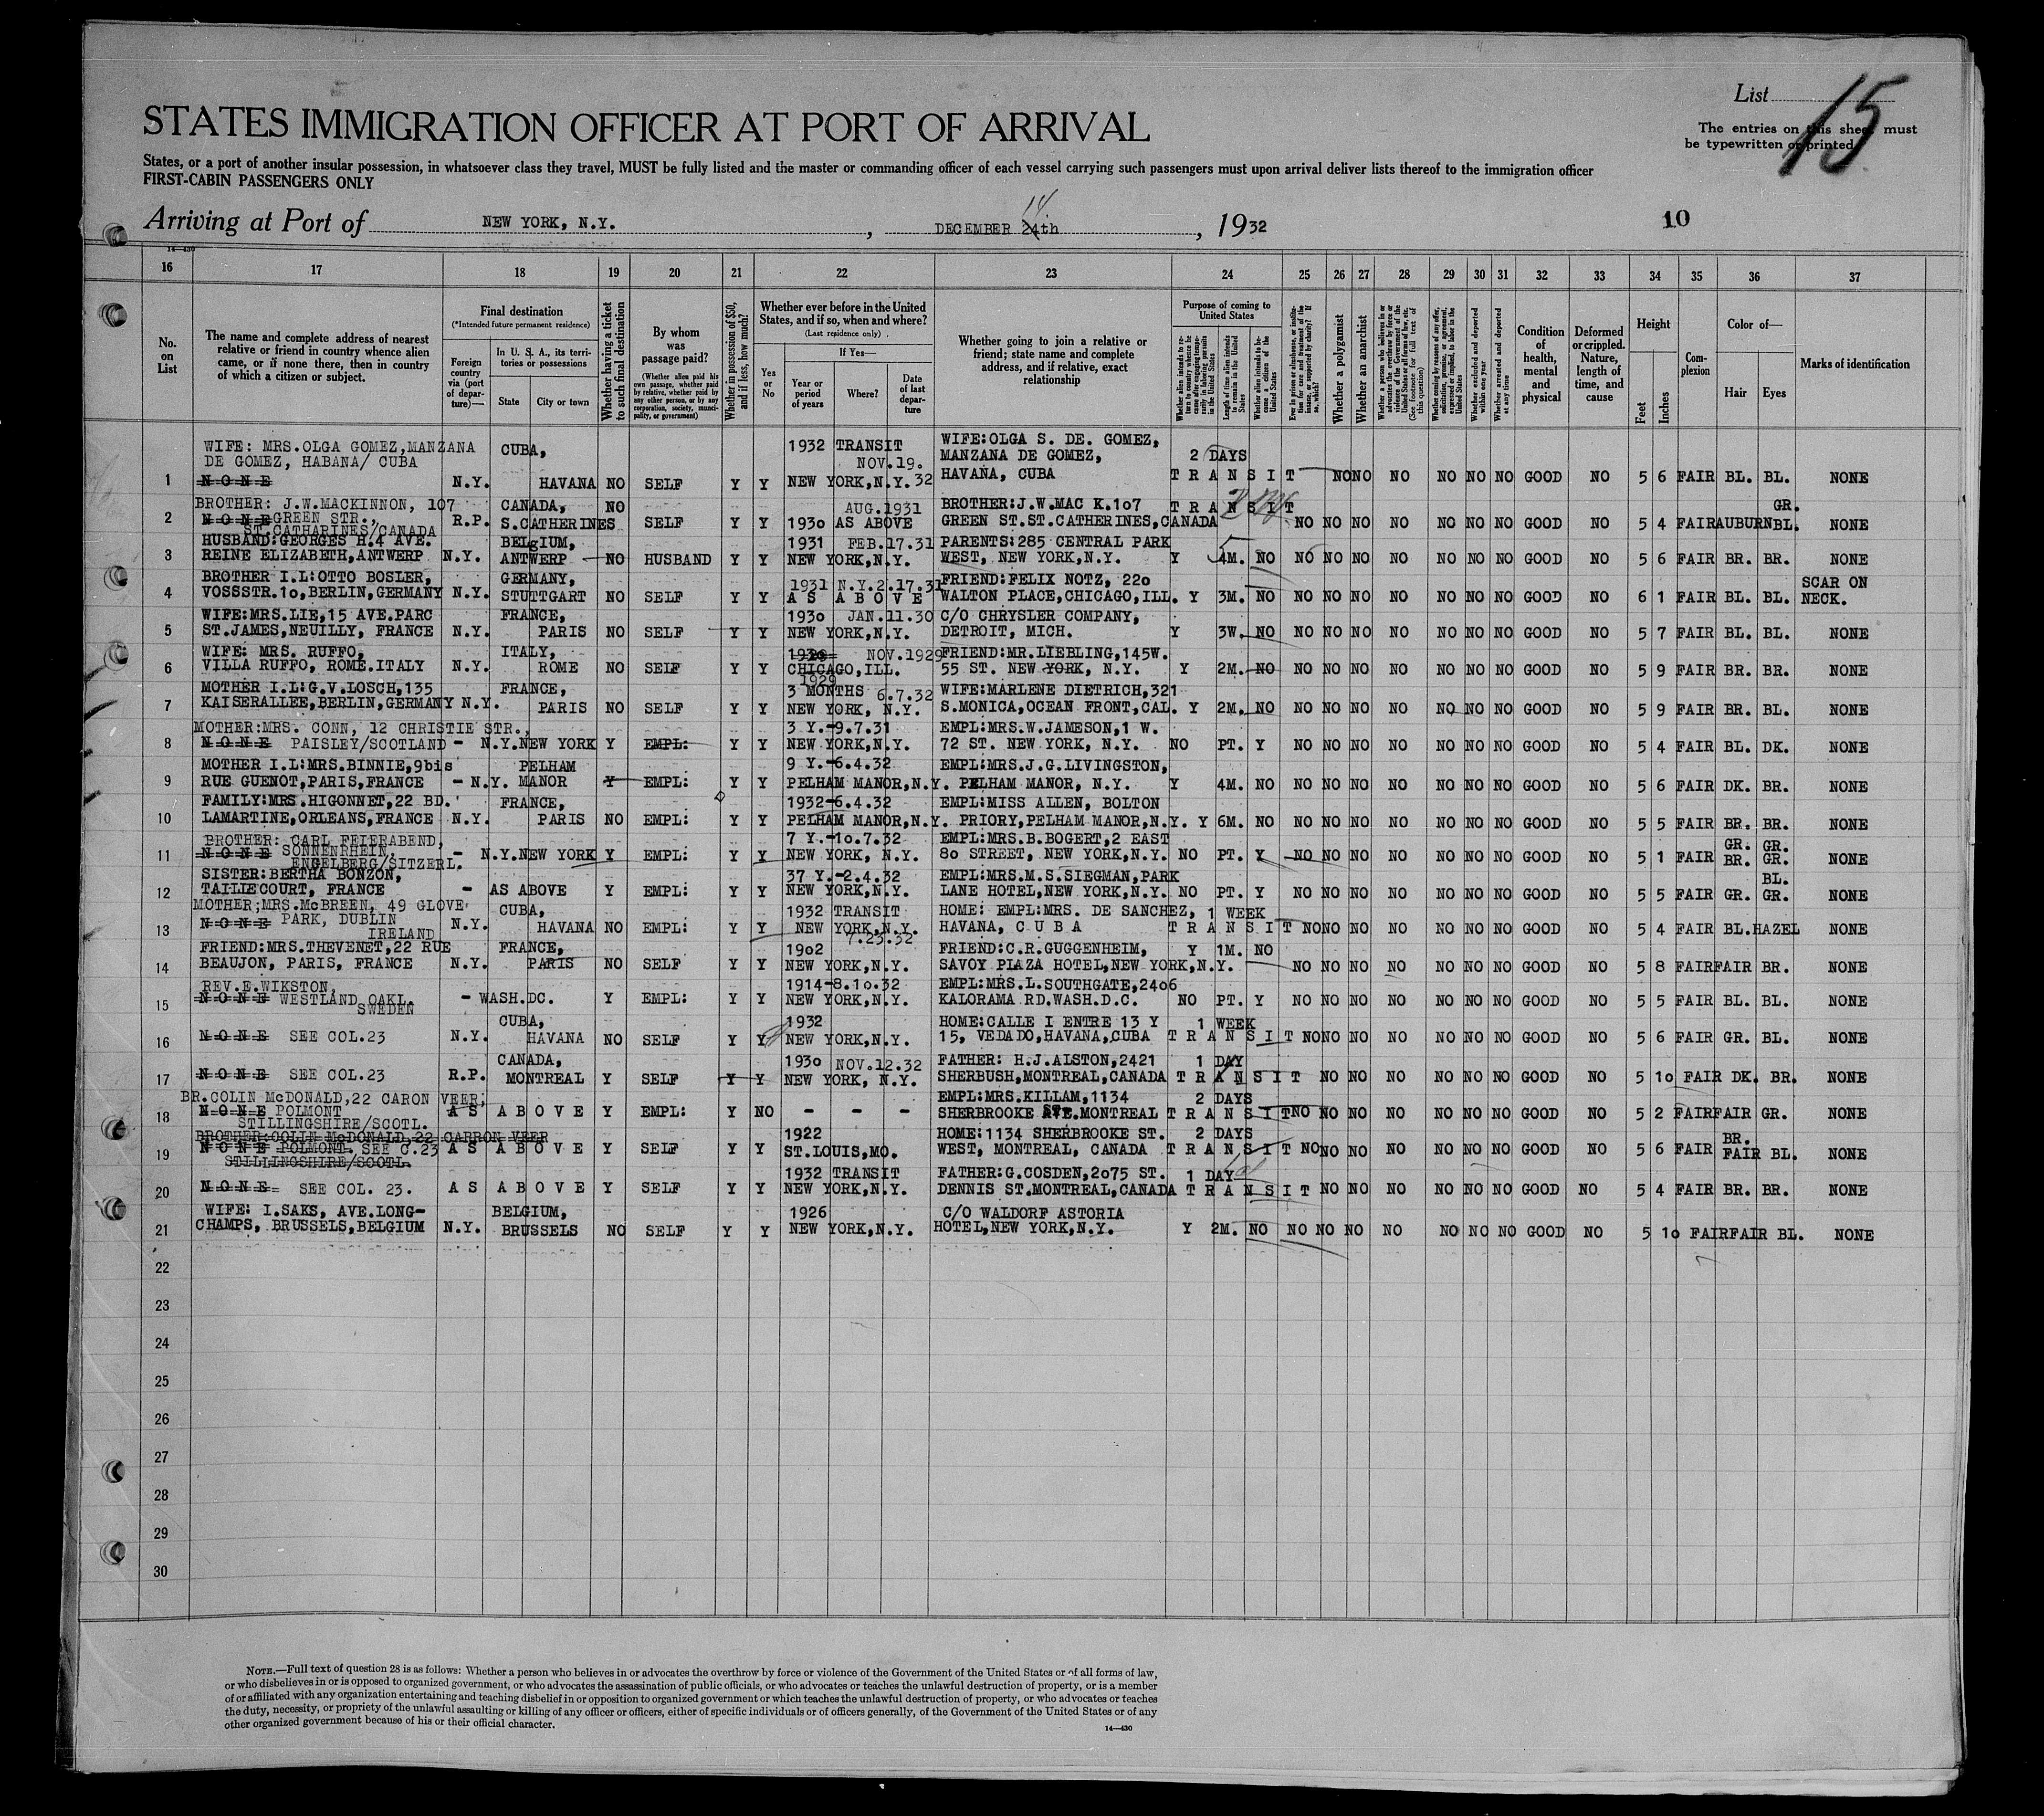 List 15
STATES IMMIGRATION OFFICER AT PORT OF ARRIVAL
The entries on this sheet must
be typewritten or printed
States, or a port of another insular possession, in whatsoever class they travel, MUST be fully listed and the master or commanding officer of each vessel carrying such passengers must upon arrival deliver lists thereof to the immigration officer
FIRST-CABIN PASSENGERS ONLY
Arriving at Port of NEW YORK, N.Y. , DECEMBER 24th 14 , 1932
10
14—430
16 17 18 19 20 21 22 23 24 25 26 27 28 29 30 31 32 33 34 35 36 37
No. on List
The name and complete address of nearest relative or friend in country whence alien came, or if none there, then in country of which a citizen or subject.
Final destination
(*Intended future permanent residence)
Foreign country via (port of departure)—
In U. S. A., its territories or possessions
State
City or town
Whether having a ticket to such final destination
By whom was passage paid?
(Whether alien paid his own passage, whether paid by relative, whether paid by any other person, or by any corporation, society, municipality, or government)
Whether in possession of $50, and if less, how much?
Whether ever before in the United States, and if so, when and where?
(Last residence only)
Yes or No
If Yes—
Year or period of years
Where?
Date of last departure
Whether going to join a relative or friend; state name and complete address, and if relative, exact relationship
Purpose of coming to United States
Length of time alien intends to remain in the United States
Whether alien intends to become a citizen of the United States
Whether a polygamist
Whether an anarchist
Whether excluded and deported within one year
Whether arrested and deported at any time
Condition of health, mental and physical
Deformed or crippled. Nature, length of time, and cause
Height
Feet
Inches
Complexion
Color of—
Hair
Eyes
Marks of identification
1 WIFE: MRS.OLGA GOMEZ,MANZANA DE GOMEZ, HABANA/ CUBA NONE N.Y. CUBA, HAVANA NO SELF Y Y 1932 TRANSIT NOV.19. NEW YORK,N.Y. 32 WIFE:OLGA S. DE. GOMEZ, MANZANA DE GOMEZ, HAVANA, CUBA 2 DAYS TRANSIT NO NO NO NO NO NO GOOD NO 5 6 FAIR BL. BL. NONE
2 BROTHER: J.W.MACKINNON, 107 NONE GREEN STR., ST.CATHARINES/CANADA R.P. CANADA, S.CATHERINES NO SELF Y Y 1930 AS ABOVE AUG.1931 BROTHER:J.W.MAC K.107 GREEN ST.ST.CATHERINES,CANADA TRANSIT NO NO NO NO NO NO NO GOOD NO 5 4 FAIR AUBURN GR. BL. NONE
3 HUSBAND:GEORGES H.4 AVE. REINE ELIZABETH,ANTWERP N.Y. BELGIUM, ANTWERP NO HUSBAND Y Y 1931 FEB.17.31 NEW YORK,N.Y. PARENTS:285 CENTRAL PARK WEST, NEW YORK,N.Y. Y 4M. 5 NO NO NO NO NO NO NO NO GOOD NO 5 6 FAIR BR. BR. NONE
4 BROTHER I.L:OTTO BOSLER, VOSSSTR.10,BERLIN,GERMANY N.Y. GERMANY, STUTTGART NO SELF Y Y 1931 N.Y.2.17.31 AS ABOVE FRIEND:FELIX NOTZ, 220 WALTON PLACE,CHICAGO,ILL. Y 3M. NO NO NO NO NO NO NO NO GOOD NO 6 1 FAIR BL. BL. SCAR ON NECK.
5 WIFE:MRS.LIE,15 AVE.PARC ST.JAMES,NEUILLY, FRANCE N.Y. FRANCE, PARIS NO SELF Y Y 1930 JAN.11.30 NEW YORK,N.Y. C/O CHRYSLER COMPANY, DETROIT, MICH. Y 3W. NO NO NO NO NO NO NO NO GOOD NO 5 7 FAIR BL. BL. NONE
6 WIFE: MRS. RUFFO, VILLA RUFFO, ROME.ITALY N.Y. ITALY, ROME NO SELF Y Y 1930 NOV.1929 CHICAGO,ILL. 1929 FRIEND:MR.LIEBLING,145W. 55 ST. NEW YORK, N.Y. Y 2M. NO NO NO NO NO NO NO NO GOOD NO 5 9 FAIR BR. BR. NONE
7 MOTHER I.L:G.V.LOSCH,135 KAISERALLEE,BERLIN,GERMANY N.Y. FRANCE, PARIS NO SELF Y Y 3 MONTHS 6.7.32 NEW YORK, N.Y. WIFE:MARLENE DIETRICH,321 S.MONICA,OCEAN FRONT,CAL. Y 2M. NO NO NO NO NO NO NO NO GOOD NO 5 9 FAIR BR. BL. NONE
8 MOTHER:MRS. CONN, 12 CHRISTIE STR., NONE PAISLEY/SCOTLAND - N.Y. NEW YORK Y EMPL: Y Y 3 Y.-9.7.31 NEW YORK,N.Y. EMPL:MRS.W.JAMESON,1 W. 72 ST. NEW YORK, N.Y. NO PT. Y NO NO NO NO NO NO NO GOOD NO 5 4 FAIR BL. DK. NONE
9 MOTHER I.L:MRS.BINNIE,9bis RUE GUENOT,PARIS,FRANCE - N.Y. PELHAM MANOR Y EMPL: Y Y 9 Y.-6.4.32 PELHAM MANOR,N.Y. EMPL:MRS.J.G.LIVINGSTON, PELHAM MANOR, N.Y. Y 4M. NO NO NO NO NO NO NO NO GOOD NO 5 6 FAIR DK. BR. NONE
10 FAMILY:MRS.HIGONNET,22 BD. LAMARTINE,ORLEANS,FRANCE N.Y. FRANCE, PARIS NO EMPL: Y Y 1932-6.4.32 PELHAM MANOR,N.Y. EMPL:MISS ALLEN, BOLTON PRIORY,PELHAM MANOR,N.Y. Y 6M. NO NO NO NO NO NO NO NO GOOD NO 5 5 FAIR BR. BR. NONE
11 BROTHER: CARL FEIERABEND, NONE SONNENRHEIN, ENGELBERG/SITZERL. - N.Y. NEW YORK Y EMPL: Y Y 7 Y.-10.7.32 NEW YORK, N.Y. EMPL:MRS.B.BOGERT,2 EAST 80 STREET, NEW YORK,N.Y. NO PT. Y NO NO NO NO NO NO NO GOOD NO 5 1 FAIR GR. BR. GR. GR. NONE
12 SISTER:BERTHA BONZON, TAILLECOURT, FRANCE - AS ABOVE Y EMPL: Y Y 37 Y.-2.4.32 NEW YORK,N.Y. EMPL:MRS.M.S.SIEGMAN,PARK LANE HOTEL,NEW YORK,N.Y. NO PT. Y NO NO NO NO NO NO NO GOOD NO 5 5 FAIR GR. BL. GR. NONE
13 MOTHER;MRS.McBREEN, 49 GLOVE NONE PARK, DUBLIN IRELAND N.Y. CUBA, HAVANA NO EMPL: Y Y 1932 TRANSIT NEW YORK,N.Y. 7.23.32 HOME: EMPL:MRS. DE SANCHEZ, HAVANA, CUBA 1 WEEK TRANSIT NO NO NO NO NO NO NO GOOD NO 5 4 FAIR BL. HAZEL NONE
14 FRIEND:MRS.THEVENET,22 RUE BEAUJON, PARIS, FRANCE N.Y. FRANCE, PARIS NO SELF Y Y 1902 NEW YORK,N.Y. FRIEND:C.R.GUGGENHEIM, SAVOY PLAZA HOTEL,NEW YORK,N.Y. Y 1M. NO NO NO NO NO NO NO NO GOOD NO 5 8 FAIR FAIR BR. NONE
15 REV.E.WIKSTON, NONE WESTLAND OAKL. SWEDEN - WASH.DC. Y EMPL: Y Y 1914-8.10.32 NEW YORK,N.Y. EMPL:MRS.L.SOUTHGATE,2406 KALORAMA RD.WASH.D.C. NO PT. Y NO NO NO NO NO NO NO GOOD NO 5 5 FAIR BL. BL. NONE
16 NONE SEE COL.23 N.Y. CUBA, HAVANA NO SELF Y Y 1932 NEW YORK,N.Y. HOME:CALLE I ENTRE 13 Y 15, VEDADO,HAVANA,CUBA 1 WEEK TRANSIT NO NO NO NO NO NO NO GOOD NO 5 6 FAIR GR. BL. NONE
17 NONE SEE COL.23 R.P. CANADA, MONTREAL Y SELF Y Y 1930 NOV.12.32 NEW YORK, N.Y. FATHER: H.J.ALSTON,2421 SHERBUSH,MONTREAL,CANADA 1 DAY TRANSIT NO NO NO NO NO NO GOOD NO 5 10 FAIR DK. BR. NONE
18 BR.COLIN McDONALD,22 CARON VEER, NONE POLMONT STILLINGSHIRE/SCOTL. AS ABOVE Y EMPL: Y NO - - - EMPL:MRS.KILLAM,1134 SHERBROOKE STE.MONTREAL 2 DAYS TRANSIT NO NO NO NO NO NO NO GOOD NO 5 2 FAIR FAIR GR. NONE
19 BROTHER:COLIN McDONALD,22 CARRON VEER NONE POLMONT. SEE C.23 STILLINGSHIRE/SCOTL. AS ABOVE Y SELF Y Y 1922 ST.LOUIS,MO. HOME:1134 SHERBROOKE ST. WEST, MONTREAL, CANADA 2 DAYS TRANSIT NO NO NO NO NO NO NO GOOD NO 5 6 FAIR BR. FAIR BL. NONE
20 NONE SEE COL. 23. AS ABOVE Y SELF Y Y 1932 TRANSIT NEW YORK,N.Y. FATHER:G.COSDEN,2075 ST. DENNIS ST.MONTREAL,CANADA 1 DAY TRANSIT NO NO NO NO NO NO GOOD NO 5 4 FAIR BR. BR. NONE
21 WIFE: I.SAKS, AVE.LONG- CHAMPS, BRUSSELS,BELGIUM N.Y. BELGIUM, BRUSSELS NO SELF Y Y 1926 NEW YORK,N.Y. C/O WALDORF ASTORIA HOTEL,NEW YORK,N.Y. Y 2M. NO NO NO NO NO NO NO NO GOOD NO 5 10 FAIR FAIR BL. NONE
22
23
24
25
26
27
28
29
30
NOTE.—Full text of question 28 is as follows: Whether a person who believes in or advocates the overthrow by force or violence of the Government of the United States or of all forms of law,
or who disbelieves in or is opposed to organized government, or who advocates the assassination of public officials, or who advocates or teaches the unlawful destruction of property, or is a member
of or affiliated with any organization entertaining and teaching disbelief in or opposition to organized government or which teaches the unlawful destruction of property, or who advocates or teaches
the duty, necessity, or propriety of the unlawful assaulting or killing of any officer or officers, either of specific individuals or of officers generally, of the Government of the United States or of any
other organized government because of his or their official character.
14—430